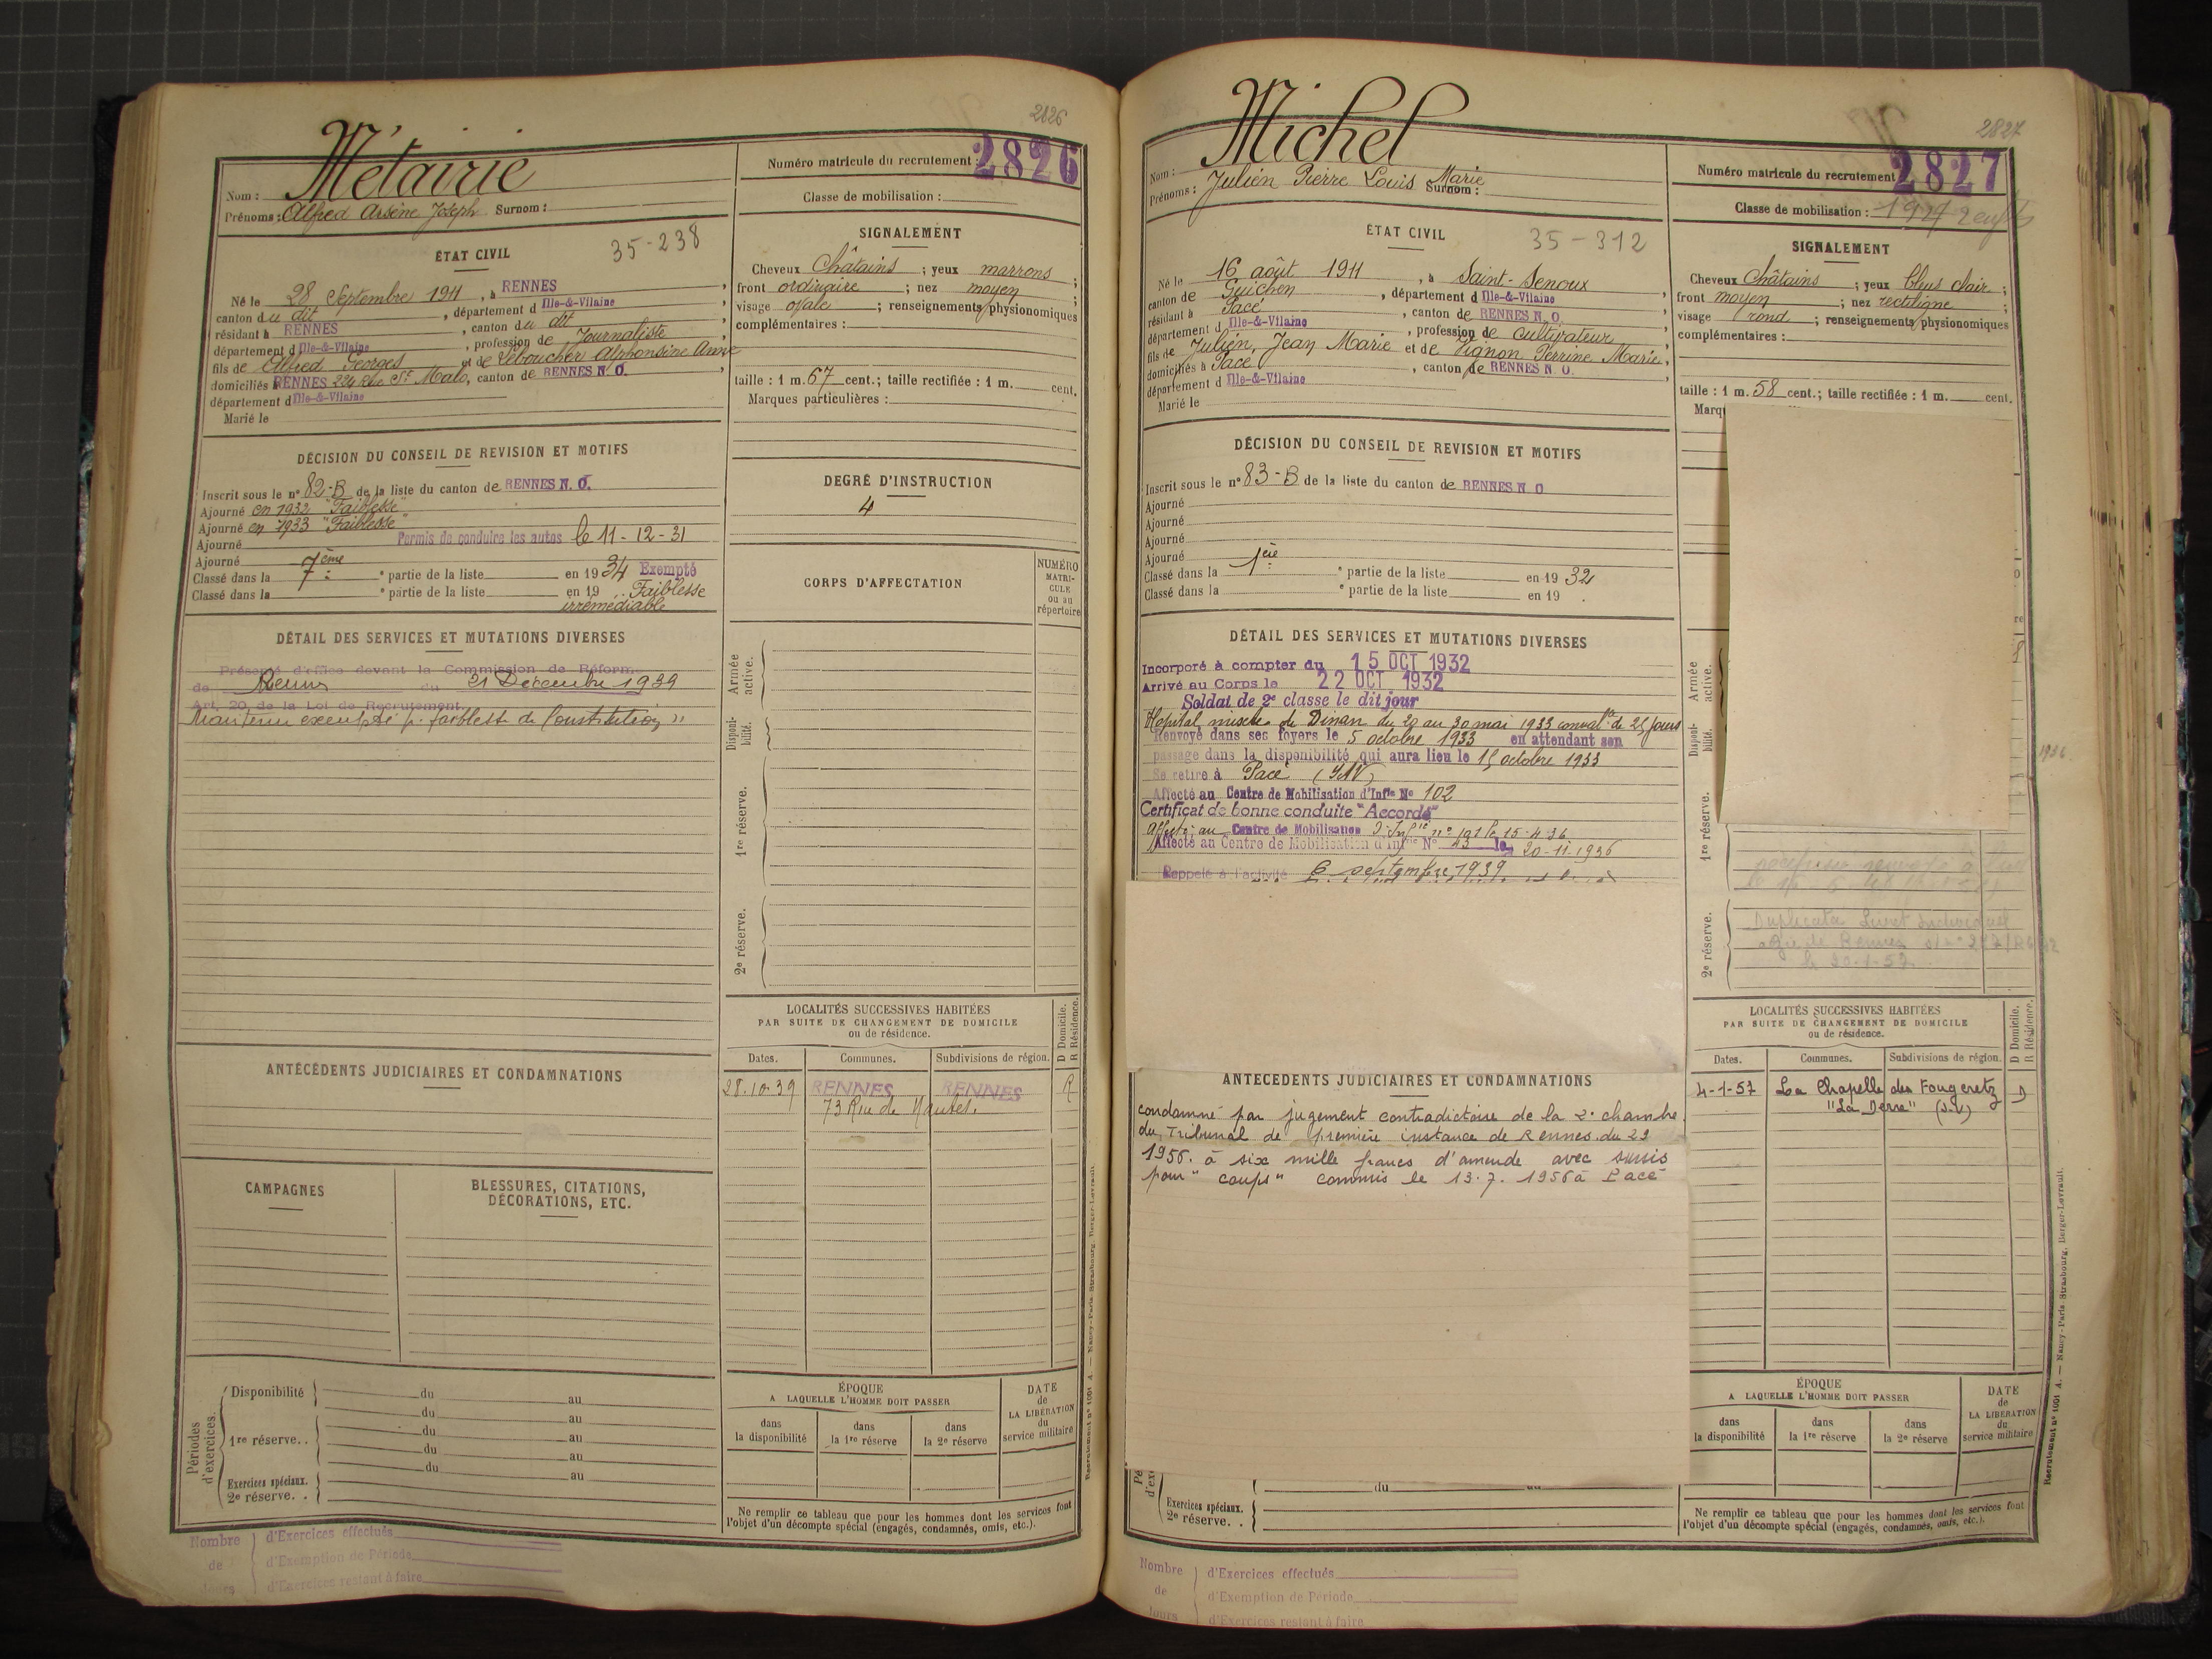 2826
Numéro matricule du recrutement : 2826
Nom : Métairie
Prénoms : Alfred Arsène Joseph Surnom :
Classe de mobilisation :
ÉTAT CIVIL
35-238
Né le 28 Septembre 1911, à RENNES
canton du dit, département d'Ille-&-Vilaine
résidant à RENNES, canton du dit
département d'Ille-&-Vilaine, profession de Journaliste
fils de Alfred Georges et de Leboucher Alphonsine Anne
domiciliés à RENNES 224 Rue St Malo, canton de RENNES N. O.
département d'Ille-&-Vilaine
Marié le
SIGNALEMENT
Cheveux Châtains ; yeux marrons ;
front ordinaire ; nez moyen ;
visage ovale ; renseignements physionomiques
complémentaires :
taille : 1 m. 67 cent.; taille rectifiée : 1 m. cent.
Marques particulières :
DÉCISION DU CONSEIL DE REVISION ET MOTIFS
Inscrit sous le n° 82-B de la liste du canton de RENNES N. O.
Ajourné en 1932 "Faiblesse"
Ajourné en 1933 "Faiblesse"
Ajourné Permis de conduire les autos le 11-12-31
Ajourné
Classé dans la 7ème partie de la liste en 1934 Exempté
Classé dans la e partie de la liste en 19 Faiblesse
irrémédiable
DEGRÉ D'INSTRUCTION
4
CORPS D'AFFECTATION
NUMÉRO
MATRI-
CULE
ou au
répertoire
DÉTAIL DES SERVICES ET MUTATIONS DIVERSES
Présenté d'office devant la Commission de Réforme
de Rennes du 21 Décembre 1939
Art. 20 de la Loi de Recrutement.
Maintenu exempté p. faiblesse de Constitution "
Armée
active.
Disponi-
bilité.
1re réserve.
2e réserve.
LOCALITÉS SUCCESSIVES HABITÉES
PAR SUITE DE CHANGEMENT DE DOMICILE
ou de résidence.
D Domicile.
R Résidence.
Dates. Communes. Subdivisions de région.
28.10.39 RENNES RENNES R
73 Rue de Nantes.
ANTÉCÉDENTS JUDICIAIRES ET CONDAMNATIONS
CAMPAGNES
BLESSURES, CITATIONS,
DÉCORATIONS, ETC.
Périodes
d'exercices.
Disponibilité du au
du au
1re réserve.. du au
du au
du au
Exercices spéciaux.
2e réserve. .
ÉPOQUE
A LAQUELLE L'HOMME DOIT PASSER
dans
la disponibilité
dans
la 1re réserve
dans
la 2e réserve
DATE
de
LA LIBÉRATION
du
service militaire
Ne remplir ce tableau que pour les hommes dont les services font
l'objet d'un décompte spécial (engagés, condamnés, omis, etc.).
Recrutement n° 1001 A. — Nancy-Paris-Strasbourg, Berger-Levrault.
Nombre
de
Jours
d'Exercices effectués
d'Exemption de Période
d'Exercices restant à faire
2827
Numéro matricule du recrutement 2827
Nom : Michel
Prénoms : Julien Pierre Louis Marie Surnom :
Classe de mobilisation : 1927
ÉTAT CIVIL
35-312
Né le 16 août 1911, à Saint-Senoux
canton de Guichen, département d'Ille-&-Vilaine
résidant à Pacé, canton de RENNES N. O.
département d'Ille-&-Vilaine, profession de Cultivateur
fils de Julien, Jean Marie et de Pignon Perrine Marie
domiciliés à Pacé, canton de RENNES N. O.
département d'Ille-&-Vilaine
Marié le
SIGNALEMENT
Cheveux Châtains ; yeux bleus clair ;
front moyen ; nez rectiligne ;
visage rond ; renseignements physionomiques
complémentaires :
taille : 1 m. 58 cent.; taille rectifiée : 1 m. cent.
Marq
DÉCISION DU CONSEIL DE REVISION ET MOTIFS
Inscrit sous le n° 83-B de la liste du canton de RENNES N. O
Ajourné
Ajourné
Ajourné
Ajourné
Classé dans la 1ère partie de la liste en 1932
Classé dans la e partie de la liste en 19 .
DÉTAIL DES SERVICES ET MUTATIONS DIVERSES
Incorporé à compter du 15 OCT 1932
Arrivé au Corps le 22 OCT 1932
Soldat de 2e classe le dit jour
Hopital mixte de Dinan du 20 au 30 mai 1933 conval ce de 25 jours
Renvoyé dans ses foyers le 5 octobre 1933 en attendant son
passage dans la disponibilité qui aura lieu le 15 octobre 1933
Se retire à Pacé (I&V)
Affecté au Centre de Mobilisation d'Infie No 102
Certificat de bonne conduite "Accordé"
Affecté au Centre de Mobilisation d'Infie n° 101 le 15-4-36
Affecté au Centre de Mobilisation d'Infie N° 43 le 20-11-1936
Rappelé à l'activité 6 septembre 1939
Armée
active.
Disponi-
bilité.
1re réserve.
2e réserve.
1936
Duplicata Livret Individuel
le 30-1-57
LOCALITÉS SUCCESSIVES HABITÉES
PAR SUITE DE CHANGEMENT DE DOMICILE
ou de résidence.
D Domicile.
R Résidence.
Dates. Communes. Subdivisions de région.
4-1-57 La Chapelle des Fougeretz D
(I-V)
ANTÉCÉDENTS JUDICIAIRES ET CONDAMNATIONS
condamné par jugement contradictoire de la 2e chambre
du Tribunal de première instance de Rennes du 29
1956. à six mille francs d'amende avec sursis
pour "coups" commis le 13.7.1956 à Pacé
du au
Exercices spéciaux.
2e réserve. .
ÉPOQUE
A LAQUELLE L'HOMME DOIT PASSER
dans
la disponibilité
dans
la 1re réserve
dans
la 2e réserve
DATE
de
LA LIBÉRATION
du
service militaire
Ne remplir ce tableau que pour les hommes dont les services font
l'objet d'un décompte spécial (engagés, condamnés, omis, etc.).
Recrutement n° 1001 A. — Nancy-Paris-Strasbourg, Berger-Levrault.
Nombre
de
Jours
d'Exercices effectués
d'Exemption de Période
d'Exercices restant à faire